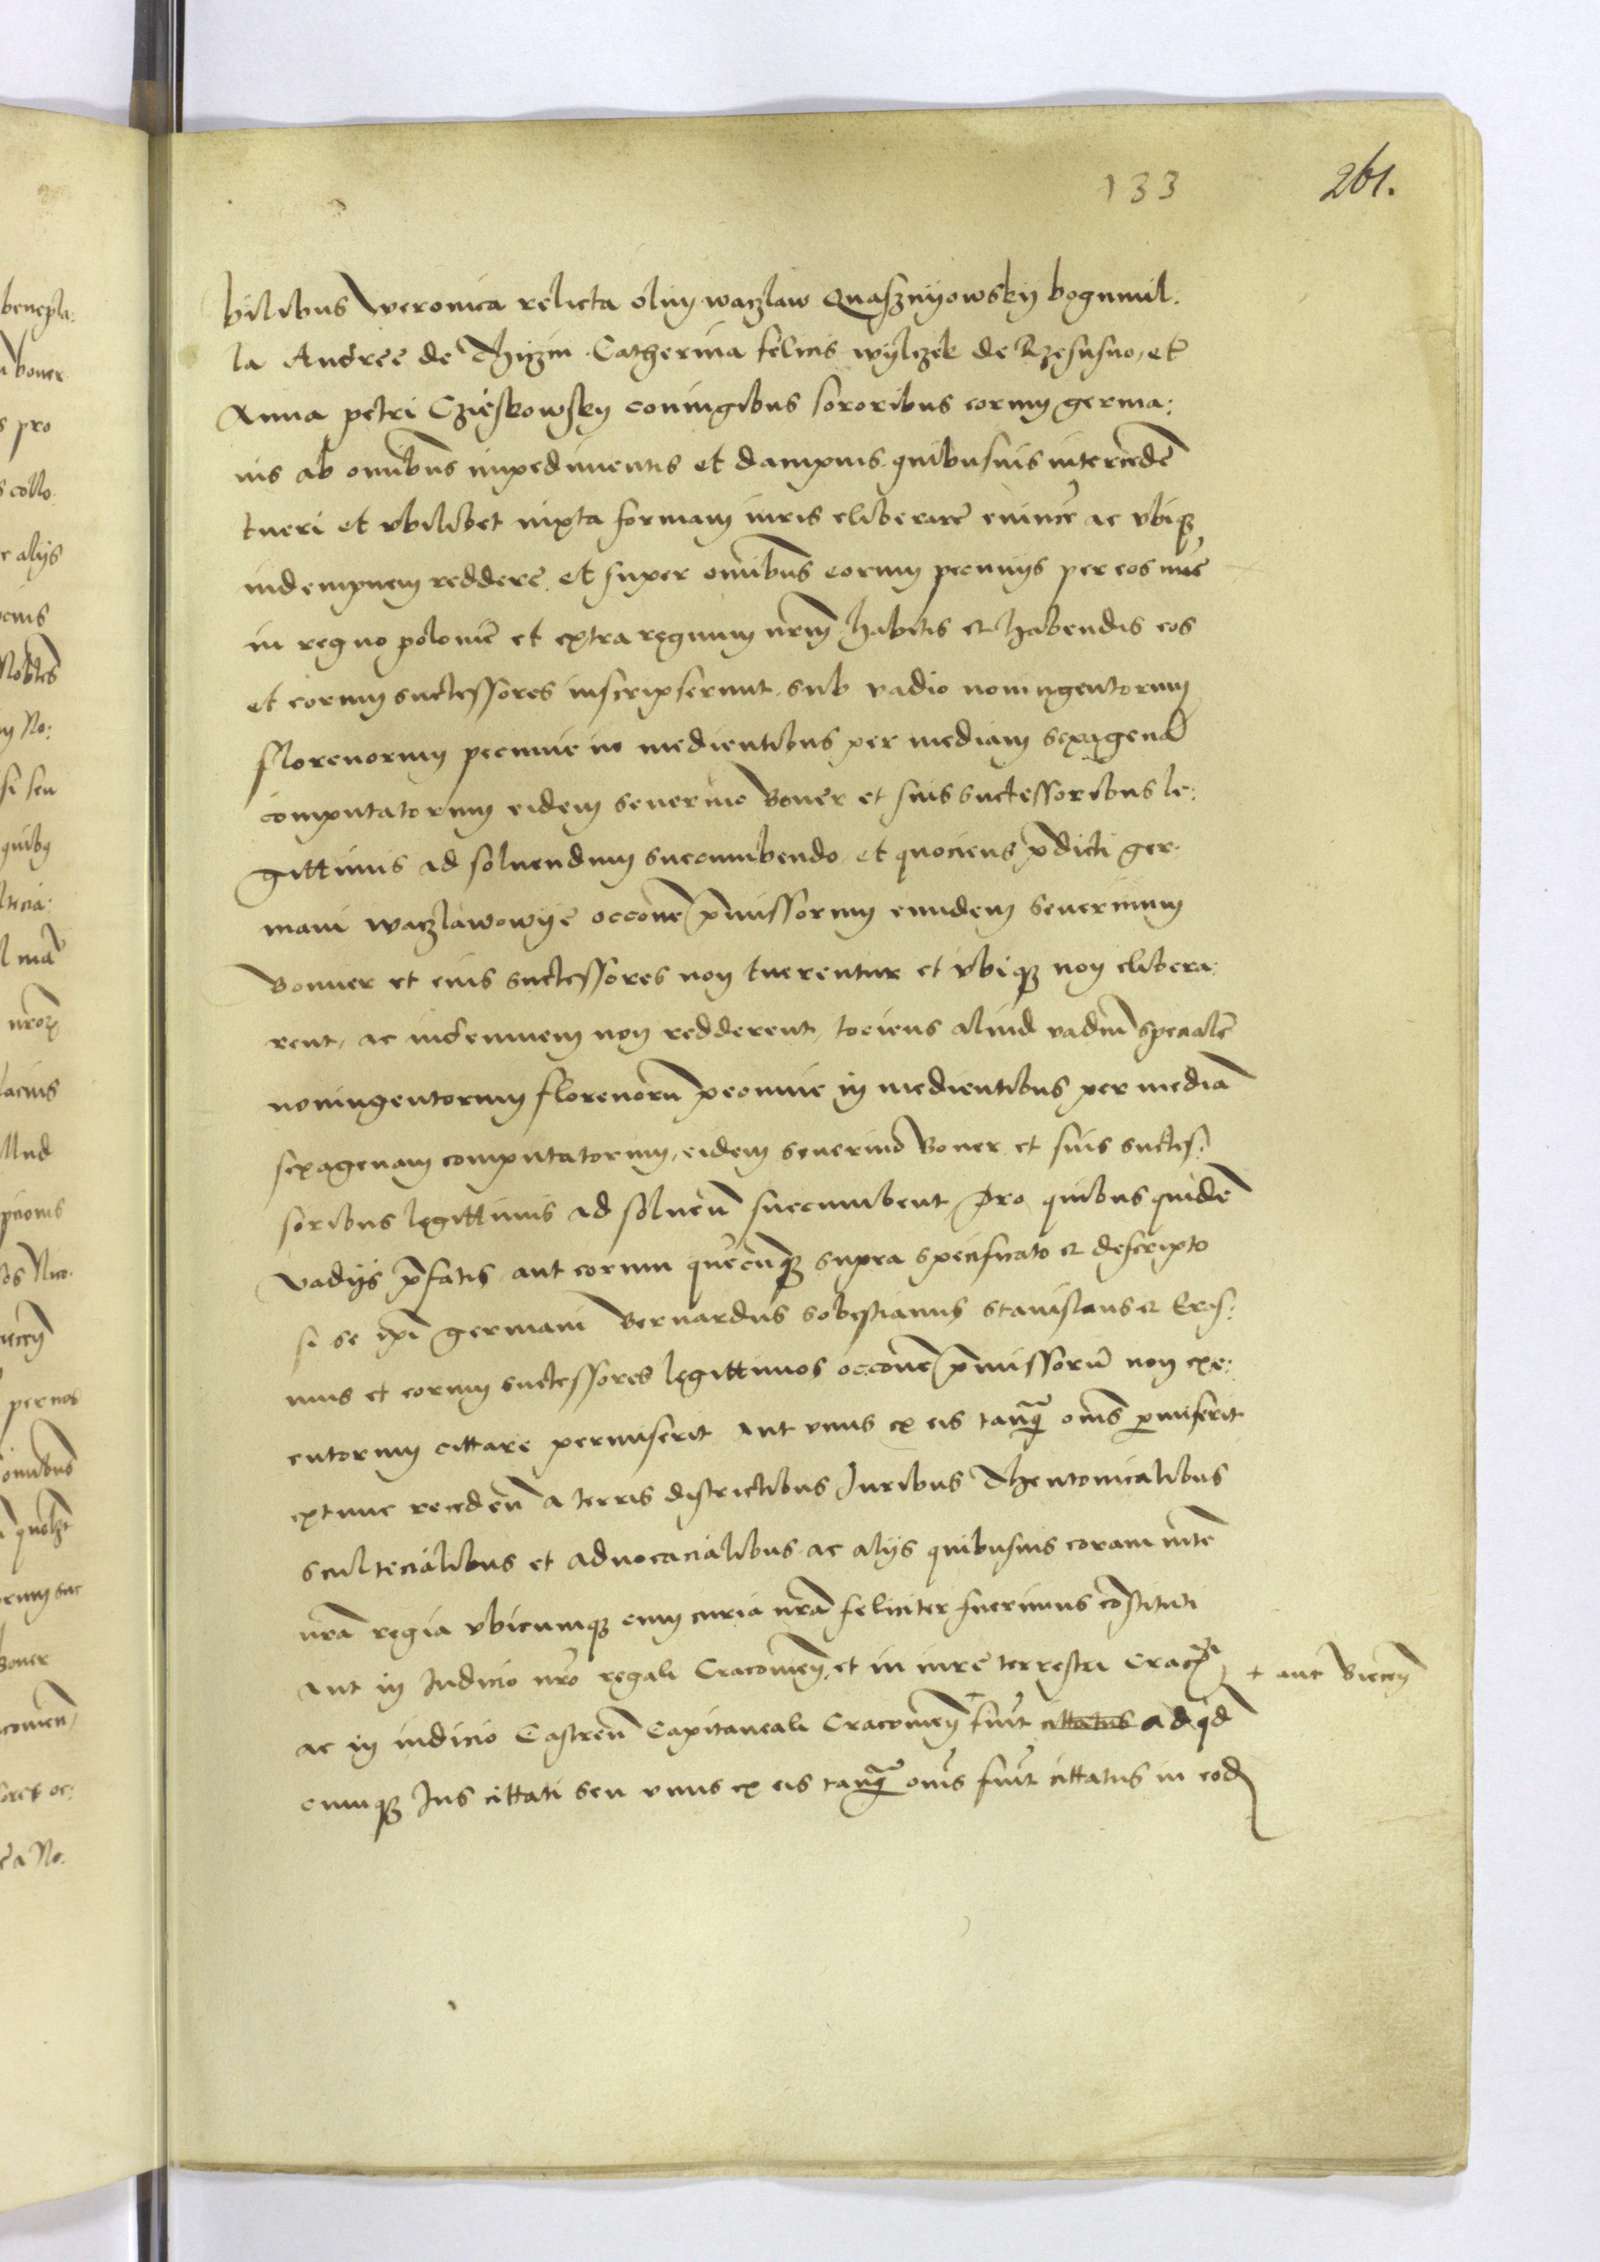 133 261.
bilibus Veronica relicta olim waczlaw Quasznyowsky bogumil.
la Andree de Catherina felicis wylczek de et
Anna petri Czieskowsky coniugibus sororibus eorum germa:
nis ab omibus impedimentis et dampnis quibusuis intercede
tueri et vbilibet iuxta formam iuris eliberare euince ac vbiqz
indempnem reddere et super omibus eorum pecunijs per eos nunc
in regno polonie et extra regnum nrm habitis et habendis eos
et eorum successores inscripserunt sub vadio noningentorum
florenorum pecunie in medientibus per mediam sexagena
computatorum eidem seuerino Boner et suis successoribus le:
gittimis ad soluendum succumbendo et quociens pdicti ger
mani waczlawowye occone pmissorum eundem seuerinum
Bonner et eius successores non tuerentur et vbiqz non elibera:
rent, ac indemnem non redderent, tociens aliud vadiu speciale
noningentorum florenoru pecunie in medientibus per media
sexagenam computatorum, eidem seuerino Boner et suis succes:
soribus legittimis ad soluen succumbent Pro quibus quide
vadijs pfatis aut eorum quocunqz supra specificato et descripto
si se ipi germani Bernardus sobestianus stanislaus et Eras:
mus et eorum successores legittimos occone pmissoru non exe:
cutorum cittare permiserit aut vnus ex eis tanq oms pmiserit
extunc receden a terris districtibus Iuribus Thentonicalibus
scultecialibus et aduocacialibus ac alijs quibusuis coram mte
nra regia vbicunqz cum curia nra feliciter fuerimus constituti
aut in Iudicio nro regali Cracouien, et in iure terrestri Crac + aut Biecen
ac in iudicio Castren Capitaneali Cracouien + fuit cittatus ad qd
cumqz Ius cittati seu vnus ex eis tanq oms fuit cittatus in eod